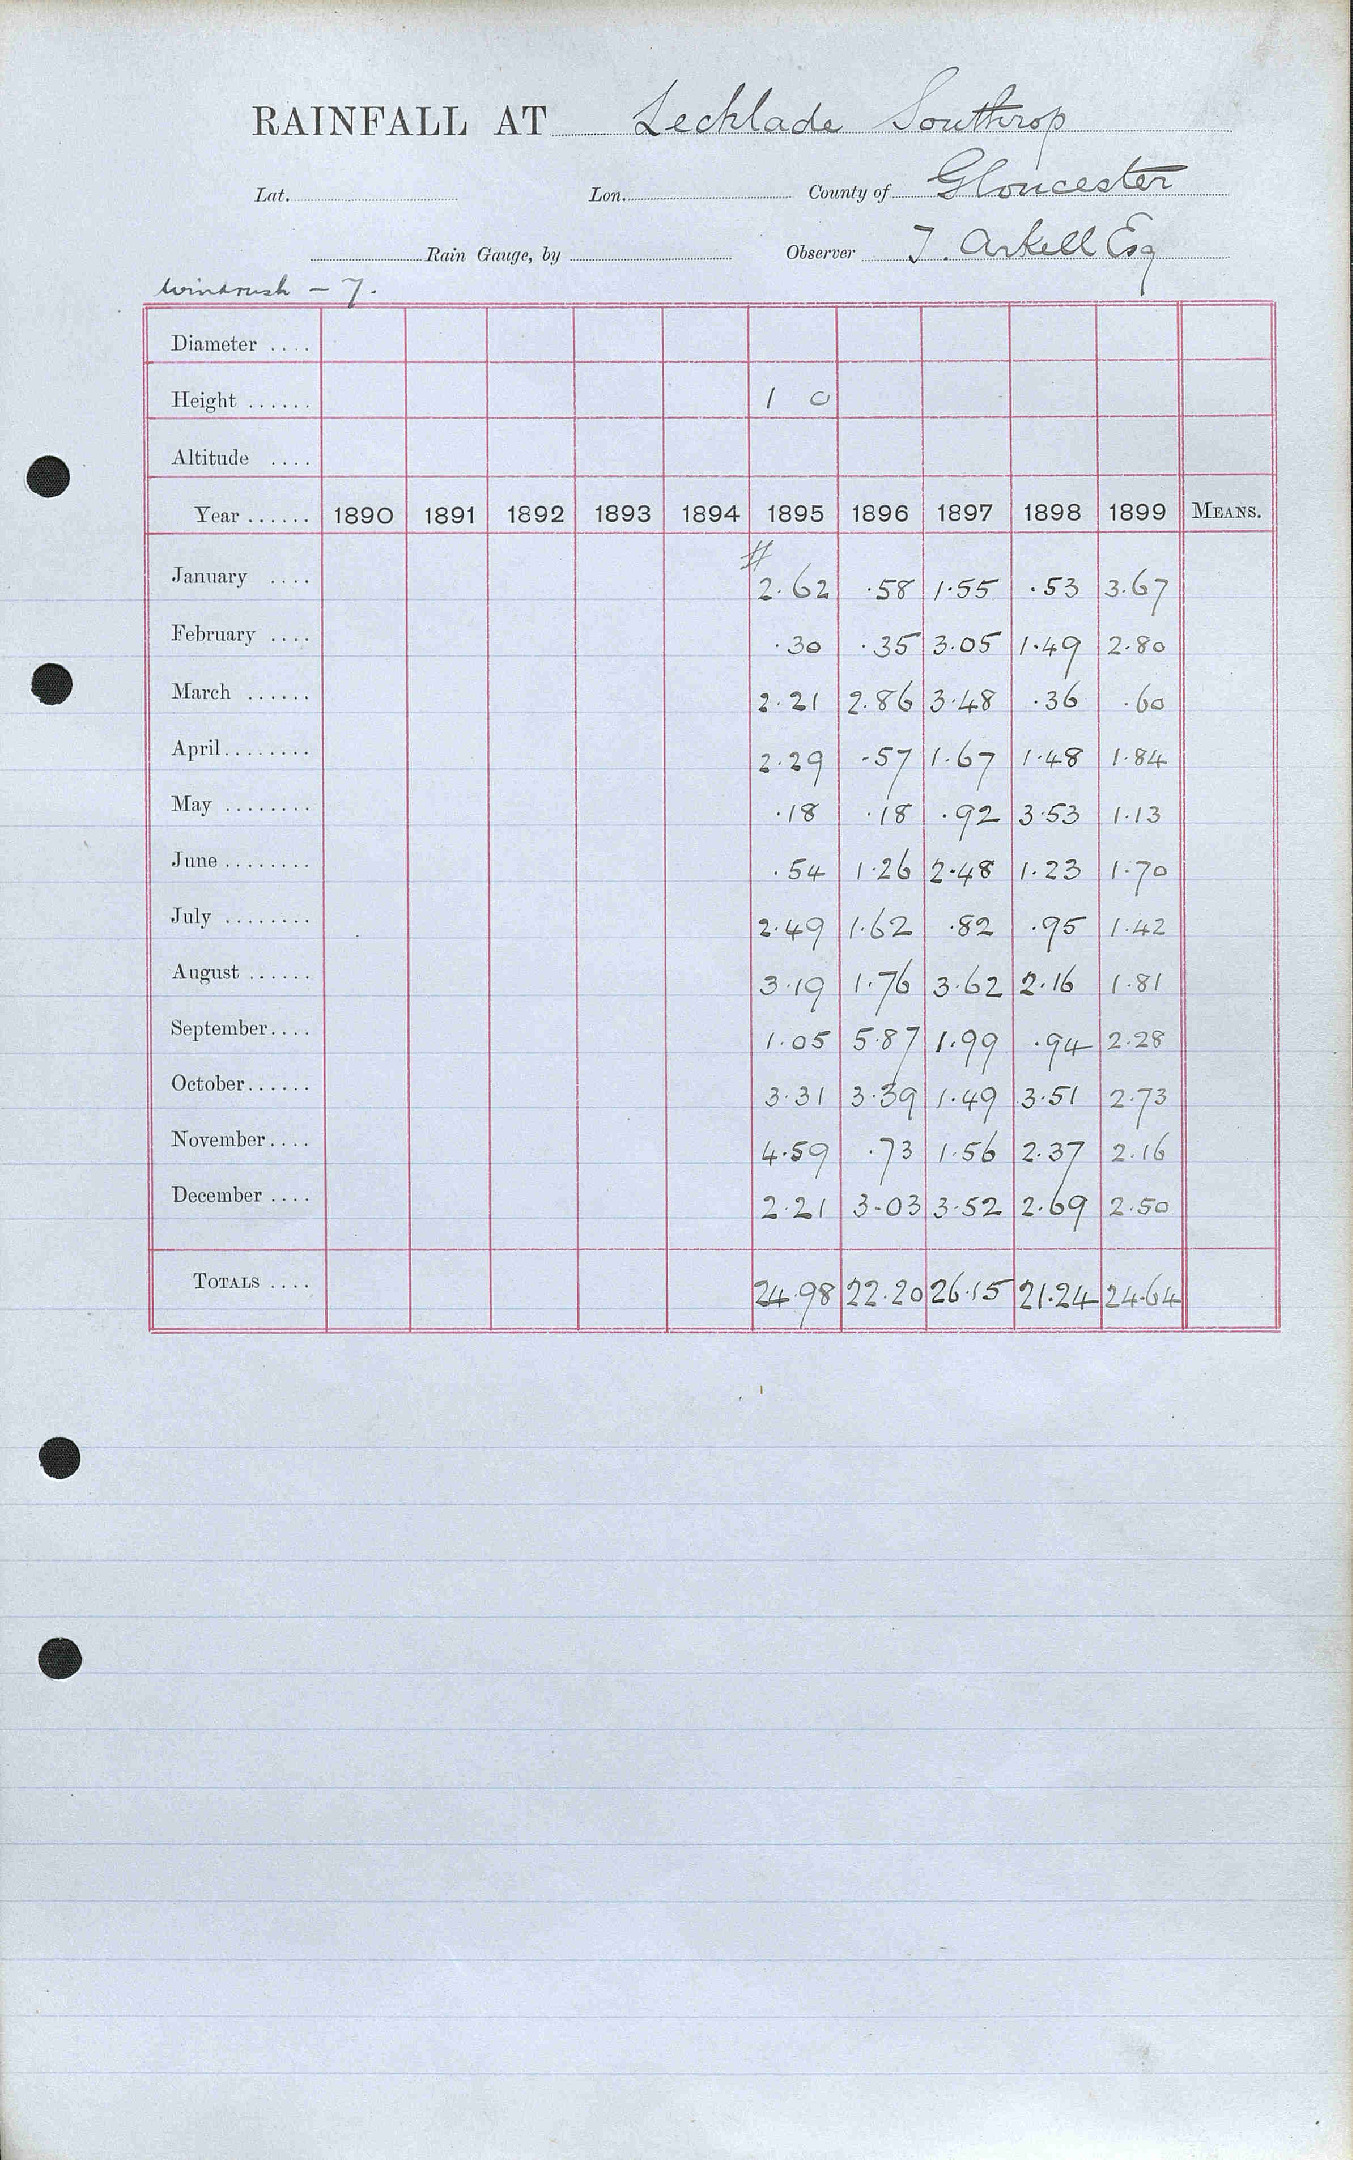 RAINFALL AT Lechlade Southrop
Lat. Lon. County of Gloucester
Rain Gauge, by Observer J. Arkell Esq
Windrush – 7.
Diameter ....
Height ...... 1 0
Altitude ....
Year ...... 1890 1891 1892 1893 1894 1895 1896 1897 1898 1899 MEANS.
#
January .... 2.62 .58 1.55 .53 3.67
February .... .30 .35 3.05 1.49 2.80
March ...... 2.21 2.86 3.48 .36 .60
April ........ 2.29 .57 1.67 1.48 1.84
May ........ .18 .18 .92 3.53 1.13
June ........ .54 1.26 2.48 1.23 1.70
July ........ 2.49 1.62 .82 .95 1.42
August ...... 3.19 1.76 3.62 2.16 1.81
September .... 1.05 5.87 1.99 .94 2.28
October ...... 3.31 3.39 1.49 3.51 2.73
November .... 4.59 .73 1.56 2.37 2.16
December .... 2.21 3.03 3.52 2.69 2.50
TOTALS .... 24.98 22.20 26.15 21.24 24.64